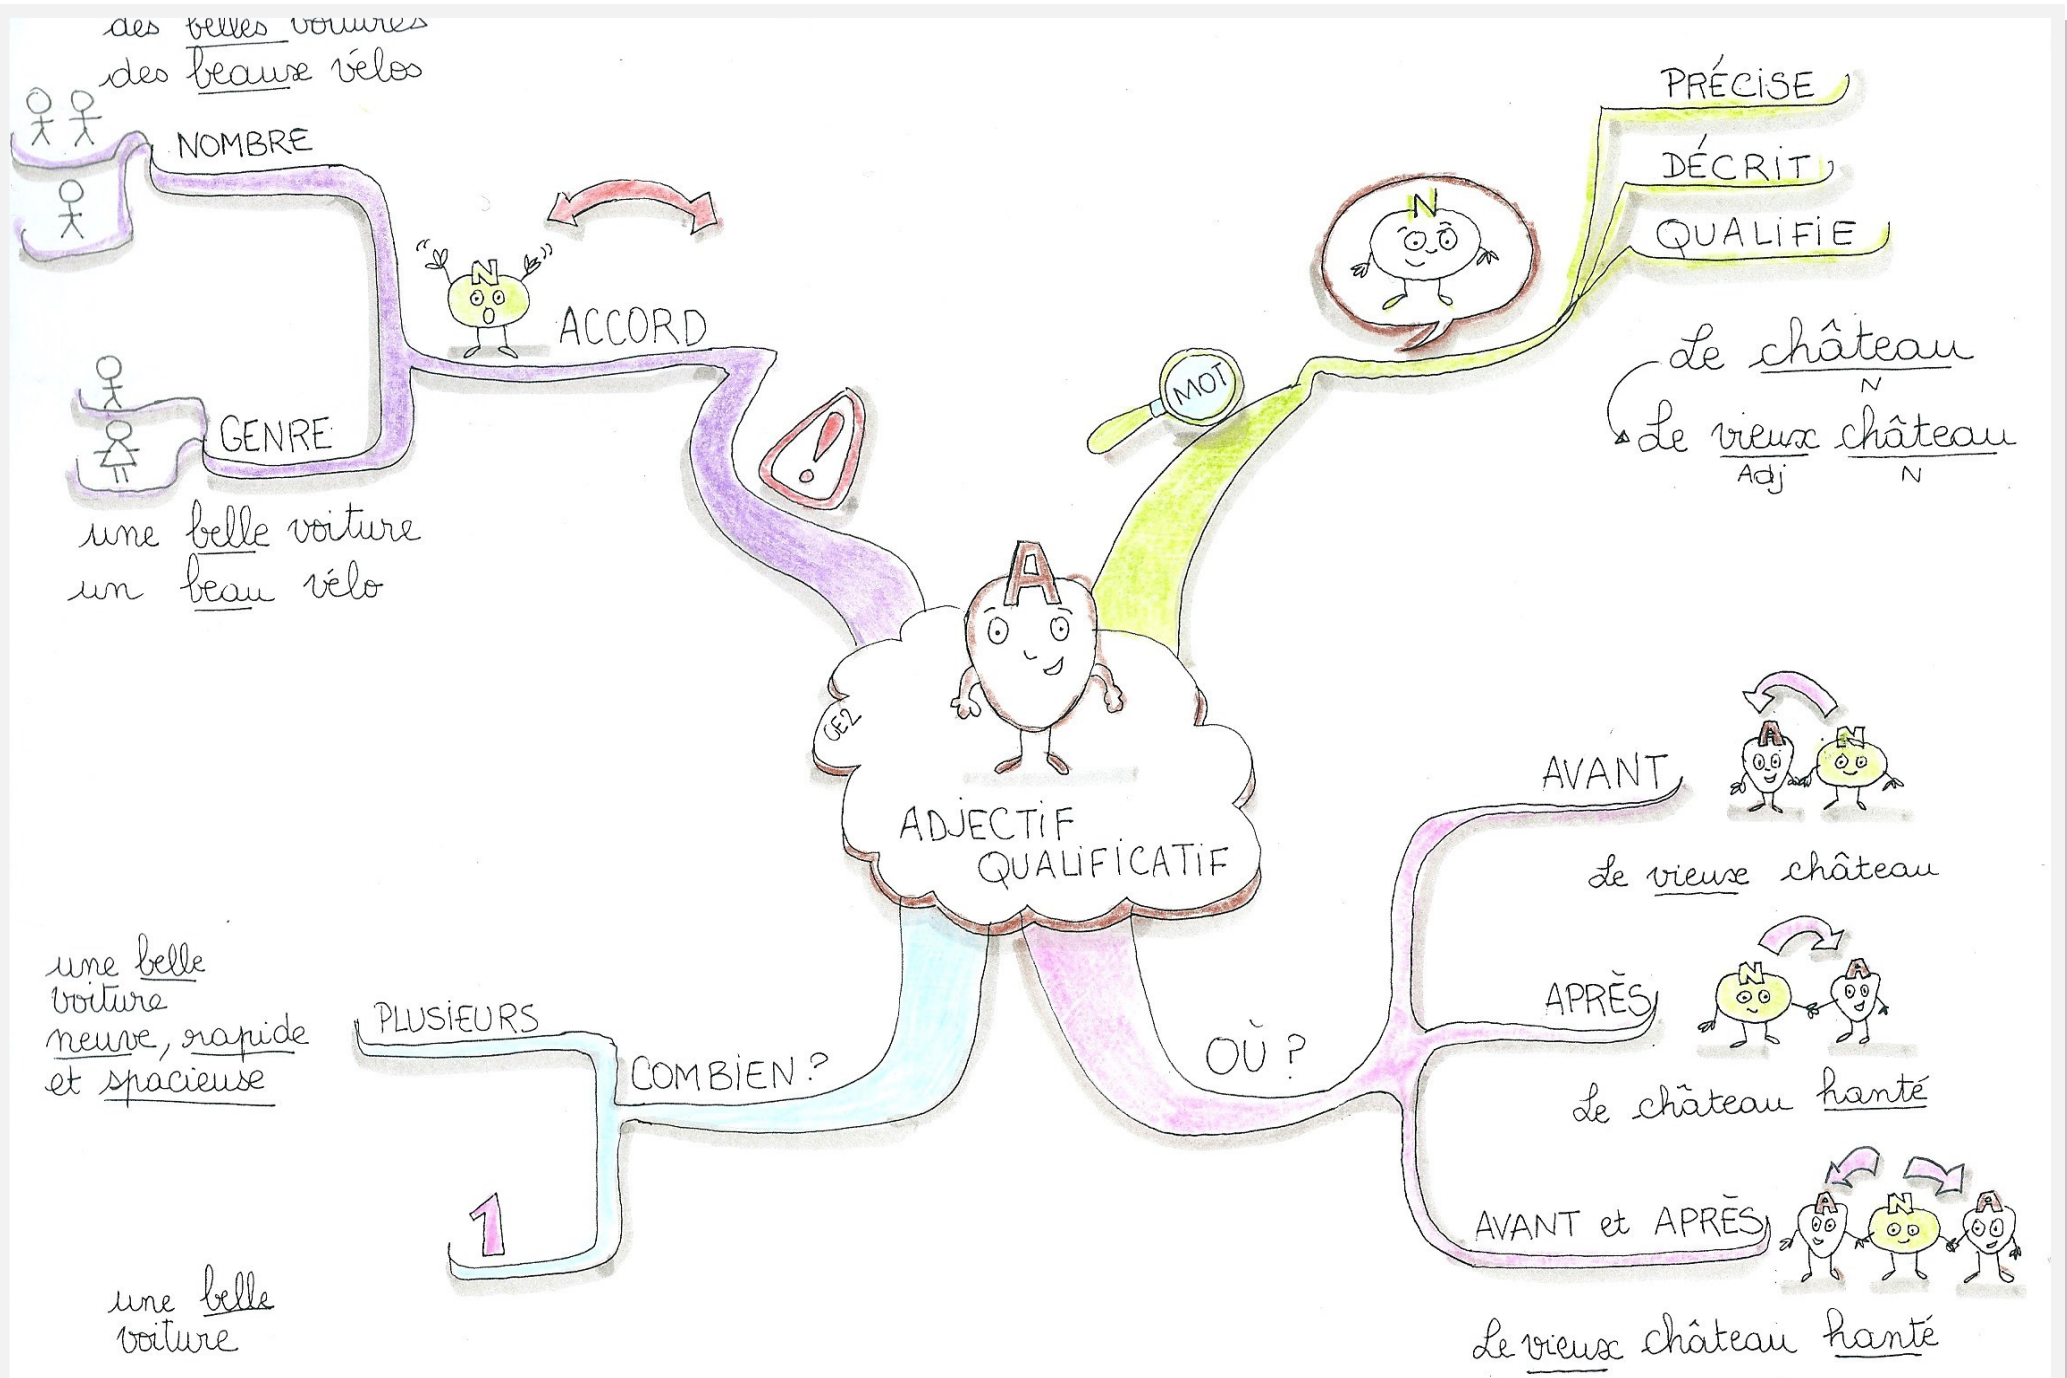 des belles voitures
des beaux vélos
NOMBRE
N
ACCORD
GENRE
une belle voiture
un beau vélo
!
MOT
N
PRÉCISE
DÉCRIT
QUALIFIE
Le château
N
Le vieux château
Adj N
A
GE2
ADJECTIF
QUALIFICATIF
AVANT
A N
Le vieux château
APRÈS
N A
Le château hanté
AVANT et APRÈS
A N A
Le vieux château hanté
OÙ ?
COMBIEN ?
PLUSIEURS
une belle
voiture
neuve, rapide
et spacieuse
1
une belle
voiture